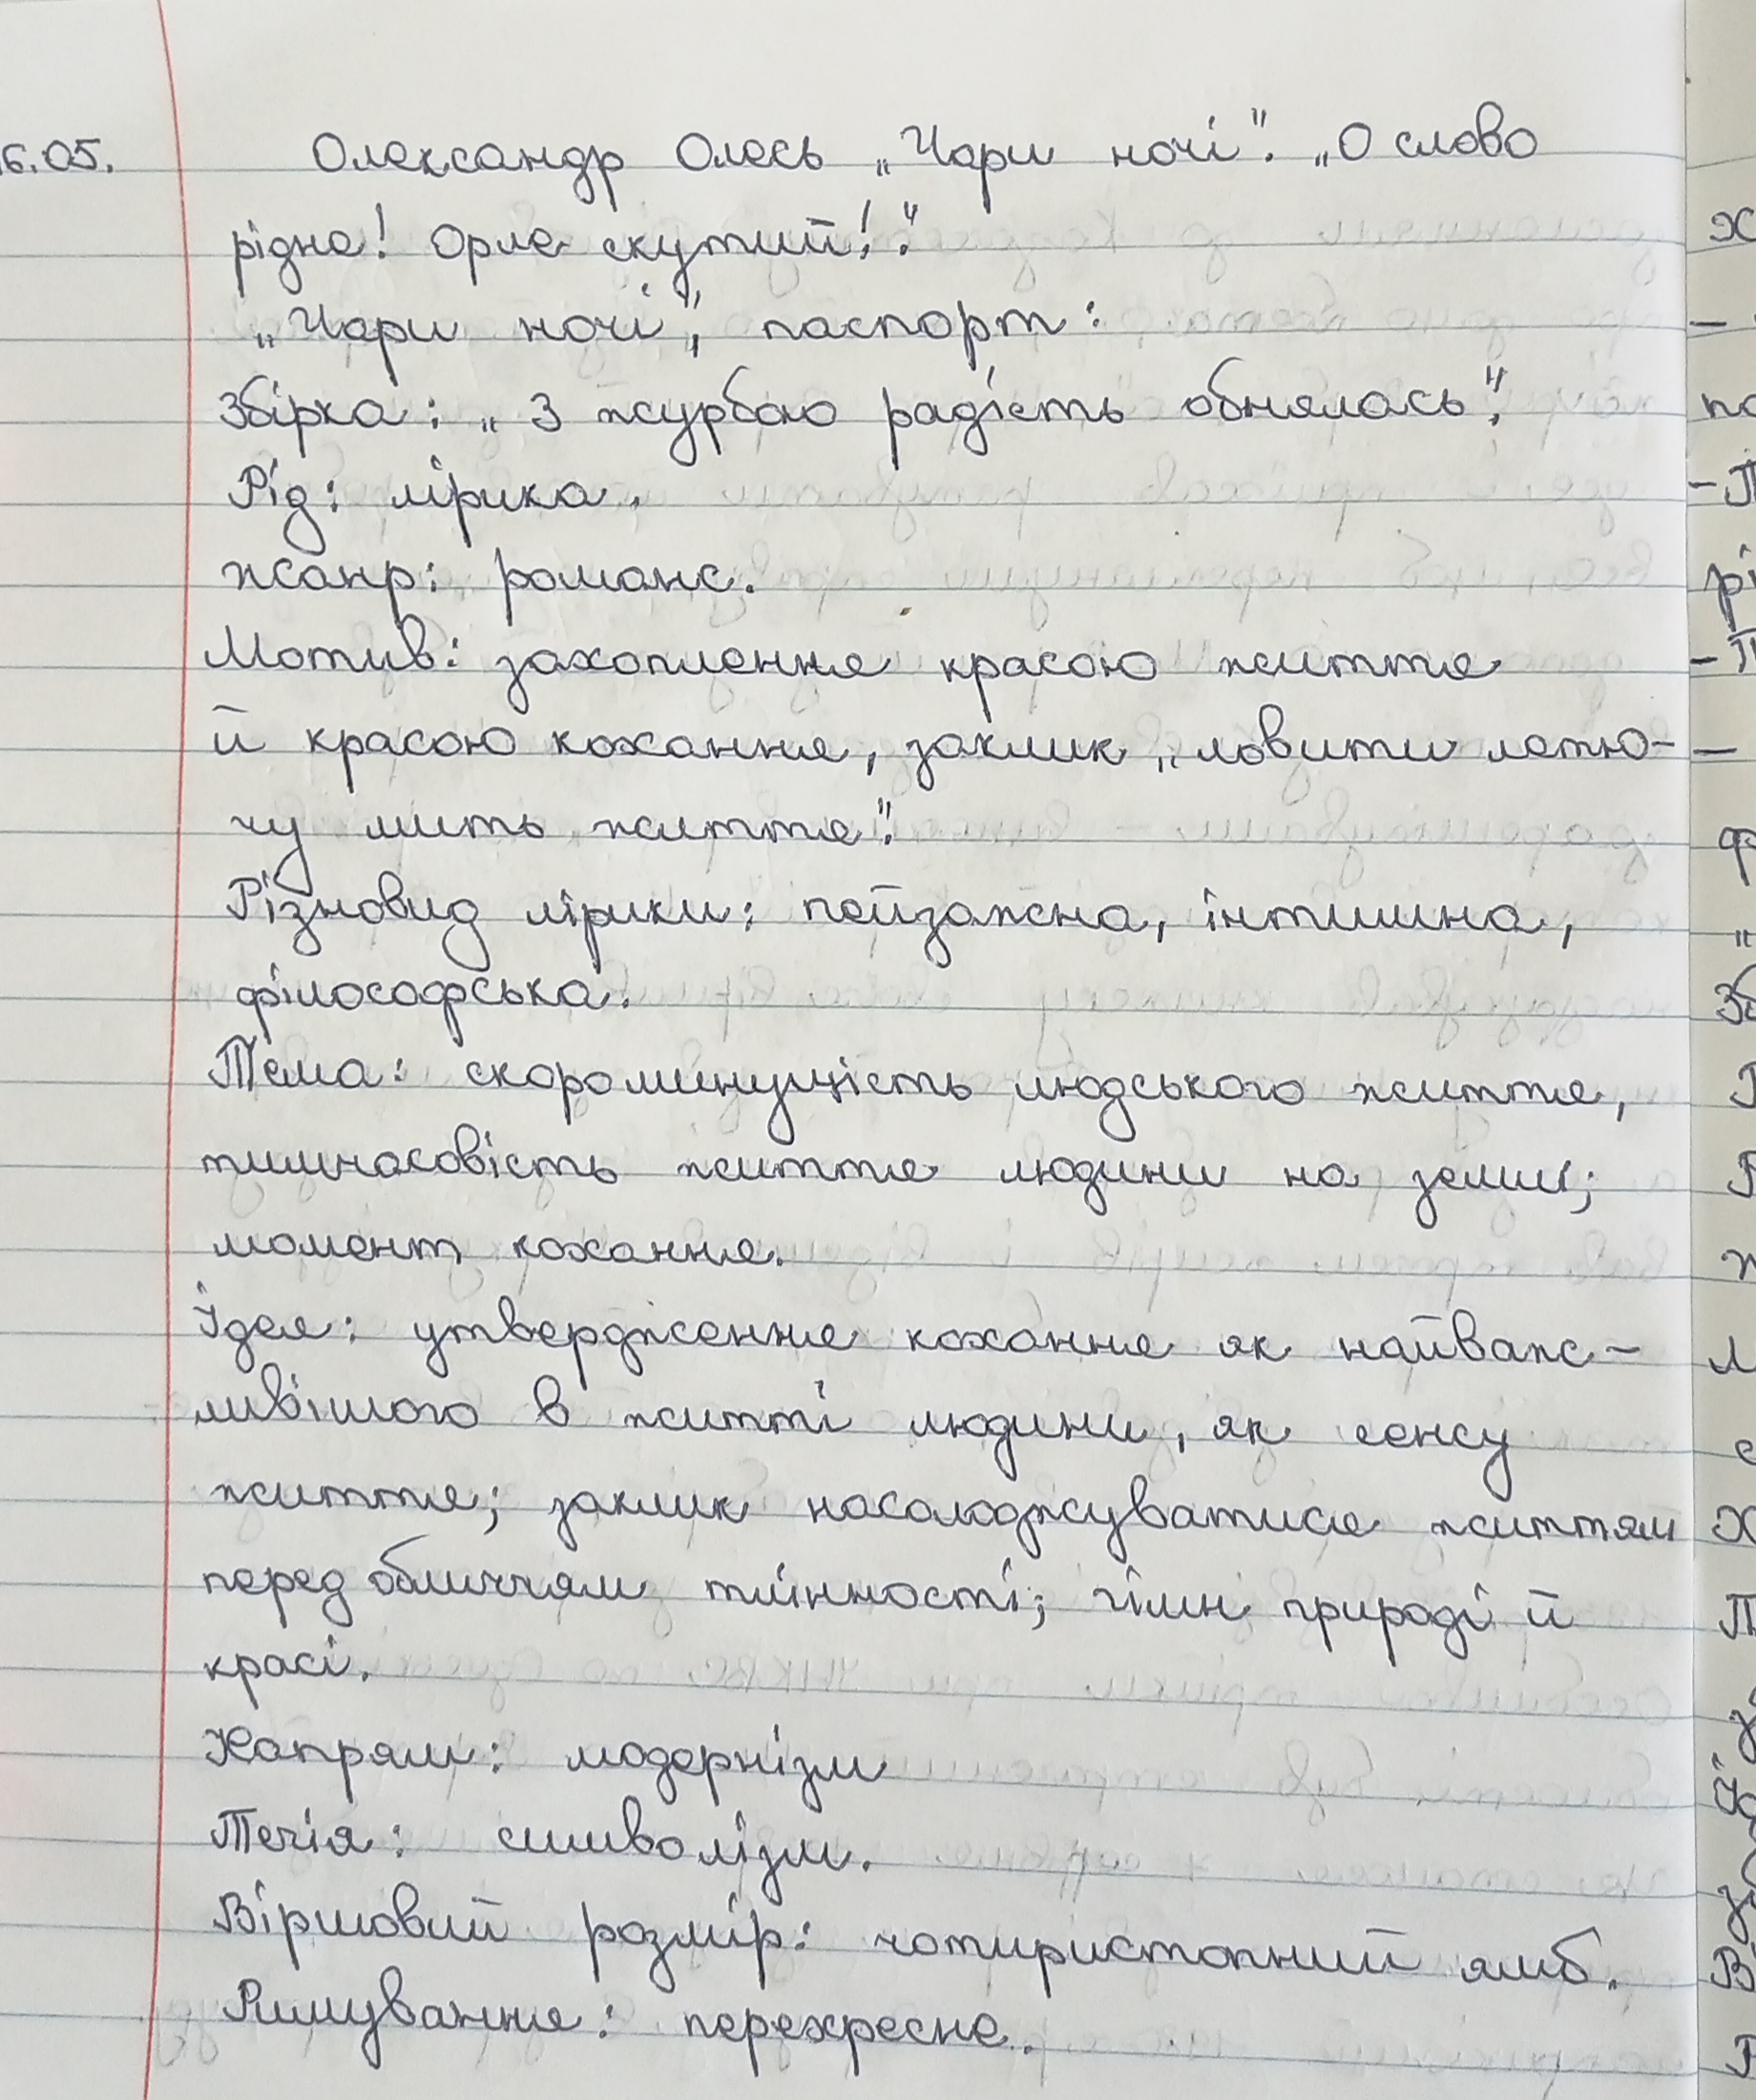 16.05. Олександр Олесь „Чари ночі". „О слово
рідне! Орле скутий!".
„Чари ночі", паспорт:
Збірка: „З журбою радість обнялась".
Рід: лірика.
Жанр: романс.
Мотив: захоплення красою життя
й красою кохання, заклик „ловити летю-
чу мить життя".
Різновид лірики: пейзажна, інтимна,
філософська.
Тема: скороминущість людського життя,
тимчасовість життя людини на землі;
момент кохання.
Ідея: утвердження кохання як найваж-
ливішого в житті людини, як сенсу
життя; заклик насолоджуватися життям
перед обличчям тлінності; гімн природі й
красі.
Напрям: модернізм
Течія: символізм.
Віршовий розмір: чотиристопний ямб.
Римування: перехресне.